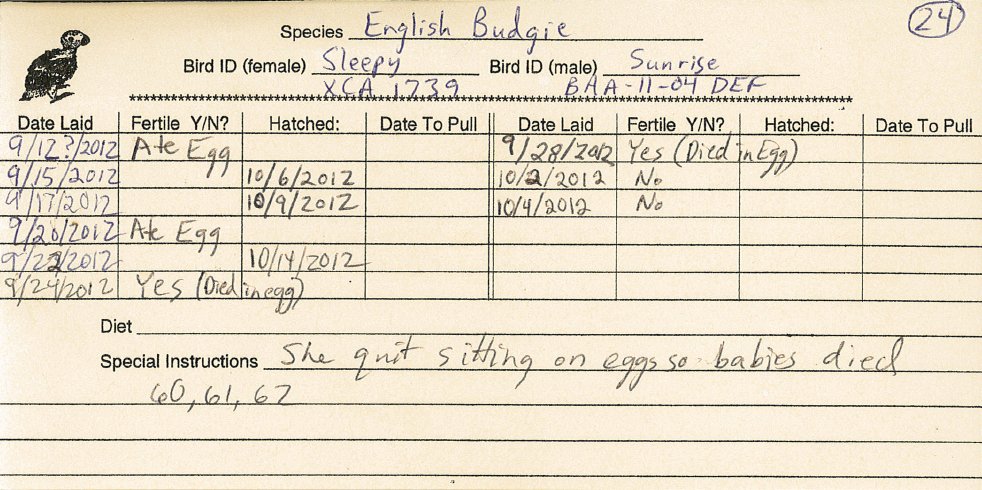 24
Species English Budgie
Bird ID (female) Sleepy Bird ID (male) Sunrise
XCA 1739 BAA-11-04 DEF
*******************************************************************************
Date Laid Fertile Y/N? Hatched: Date To Pull Date Laid Fertile Y/N? Hatched: Date To Pull
9/12?/2012 Ate Egg 9/28/2012 Yes (Died in Egg)
9/15/2012 10/6/2012 10/2/2012 No
9/17/2012 10/9/2012 10/4/2012 No
9/20/2012 Ate Egg
9/22/2012 10/14/2012
9/24/2012 Yes (Died in egg)
Diet
Special Instructions She quit sitting on eggs so babies died
60, 61, 62